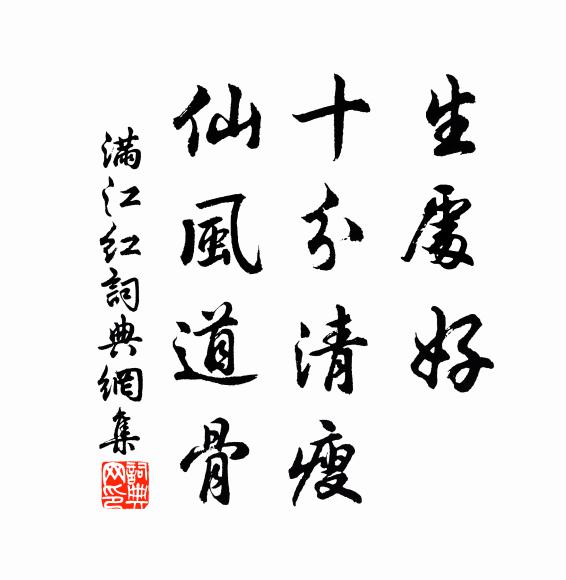 生處好
十分清瘦
仙風道骨
滿江红詞典網集
詞典
网印